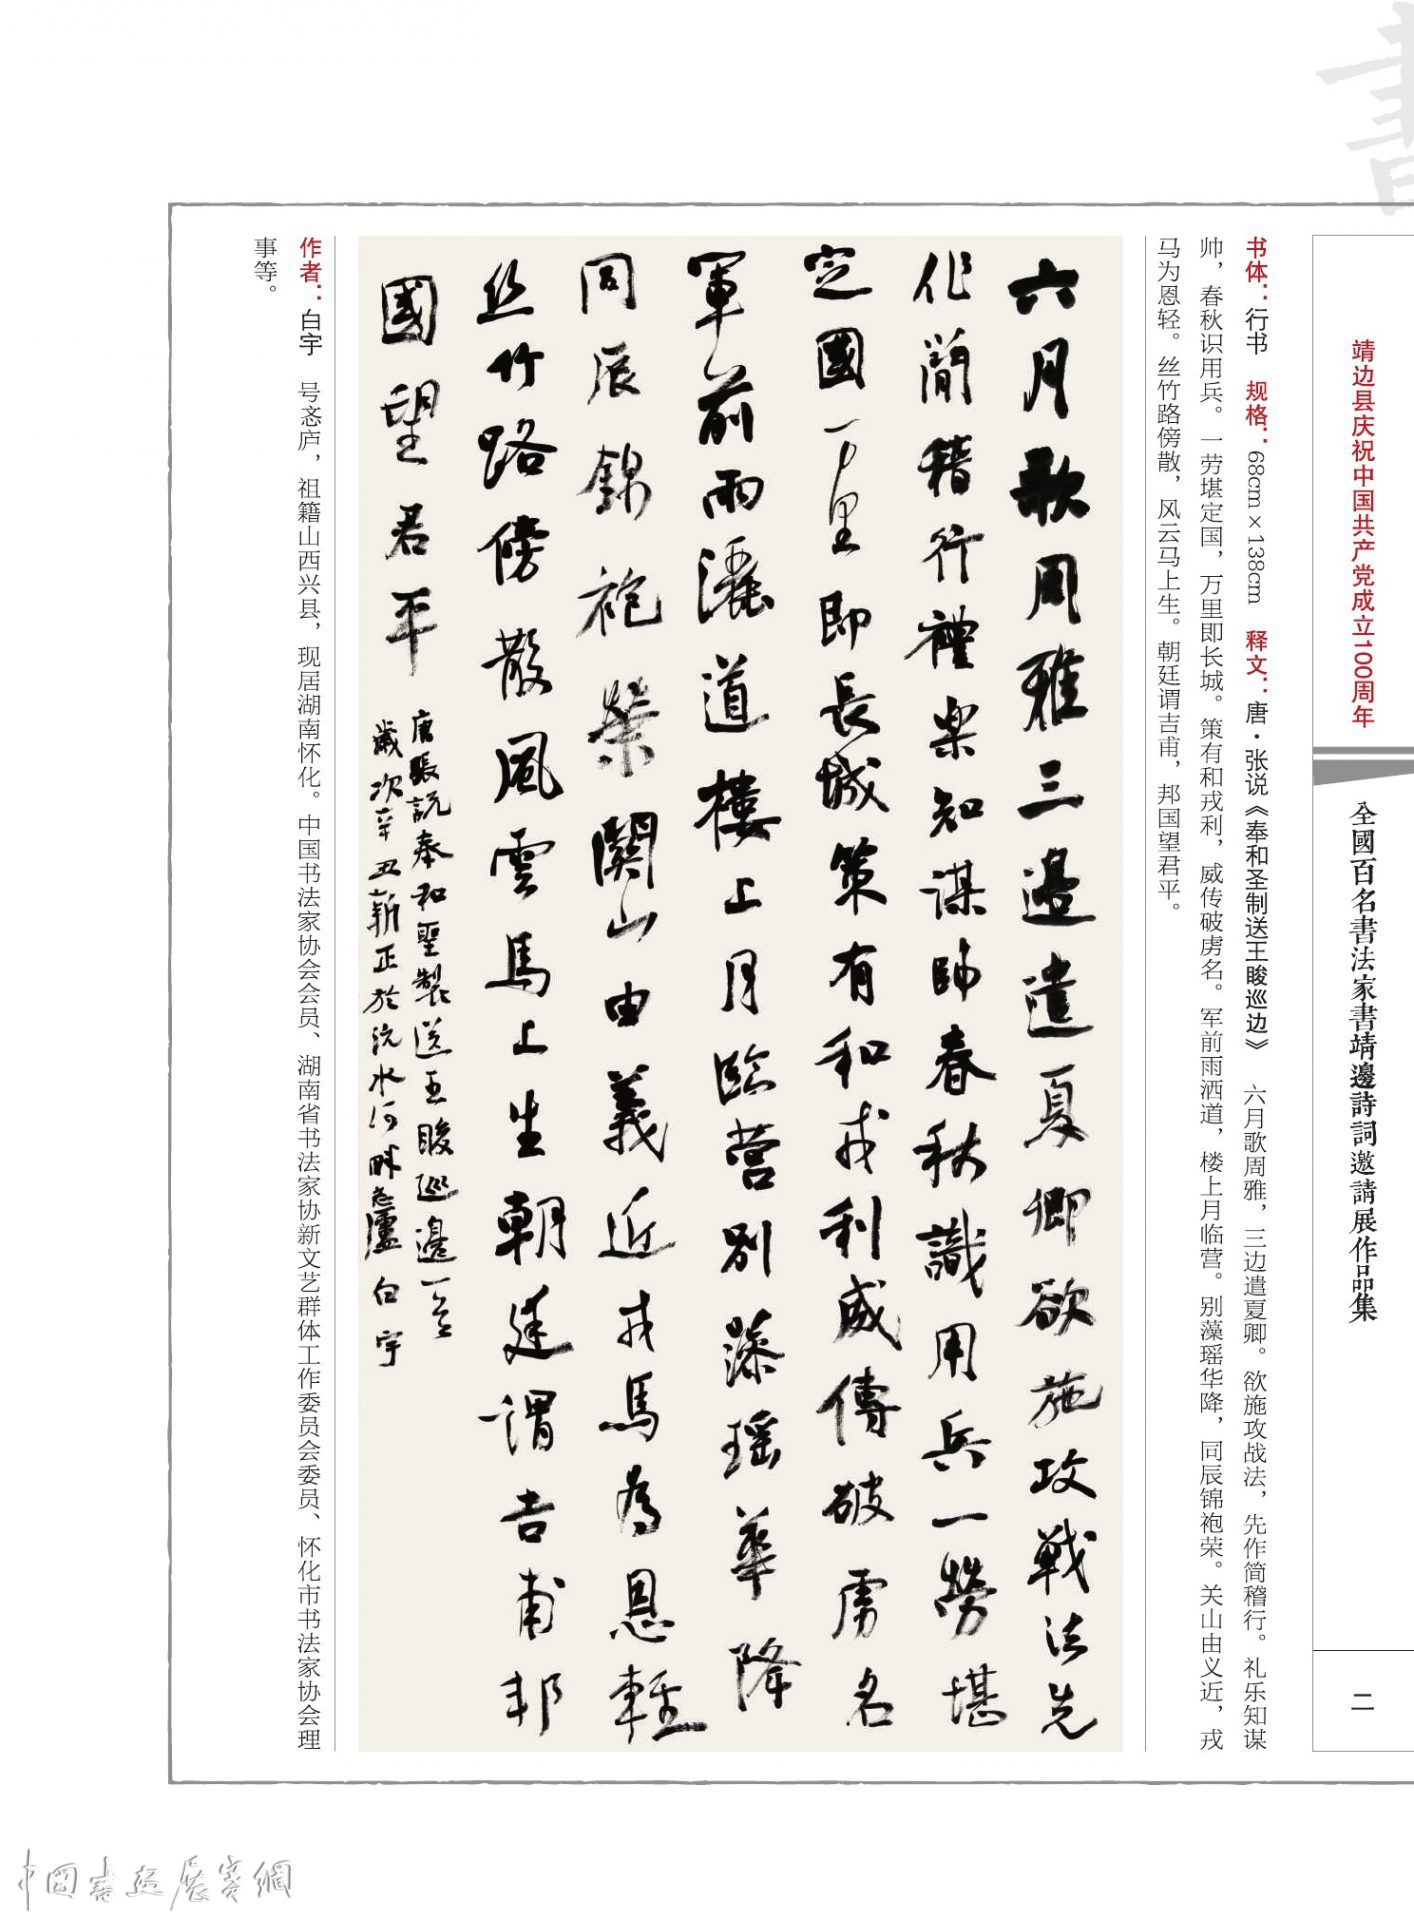 書
靖边县庆祝中国共产党成立100周年
全國百名書法家書靖邊詩詞邀請展作品集
二
书体：行书　规格：68cm×138cm　释文：唐·张说《奉和圣制送王晙巡边》　六月歌周雅，三边遣夏卿。欲施攻战法，先作简稽行。礼乐知谋
帅，春秋识用兵。一劳堪定国，万里即长城。策有和戎利，威传破虏名。军前雨洒道，楼上月临营。别藻瑶华降，同辰锦袍荣。关山由义近，戎
马为恩轻。丝竹路傍散，风云马上生。朝廷谓吉甫，邦国望君平。
六月歌周雅三邉遣夏卿欲施攻戰法先
作簡稽行禮樂知謀帥春秋識用兵一勞堪
定國万里即長城策有和戎利威傳破虜名
軍前雨灑道樓上月臨營別藻瑶華降
同辰錦袍榮關山由義近戎馬為恩輕
丝竹路傍散風雲馬上生朝廷謂吉甫邦
國望君平
唐張説奉和聖製送王晙巡邊一首
歲次辛丑新正於沅水河畔忞廬白宇
作者：白宇　号忞庐，祖籍山西兴县，现居湖南怀化。中国书法家协会会员、湖南省书法家协新文艺群体工作委员会委员、怀化市书法家协会理
事等。
中國書畫展賽網